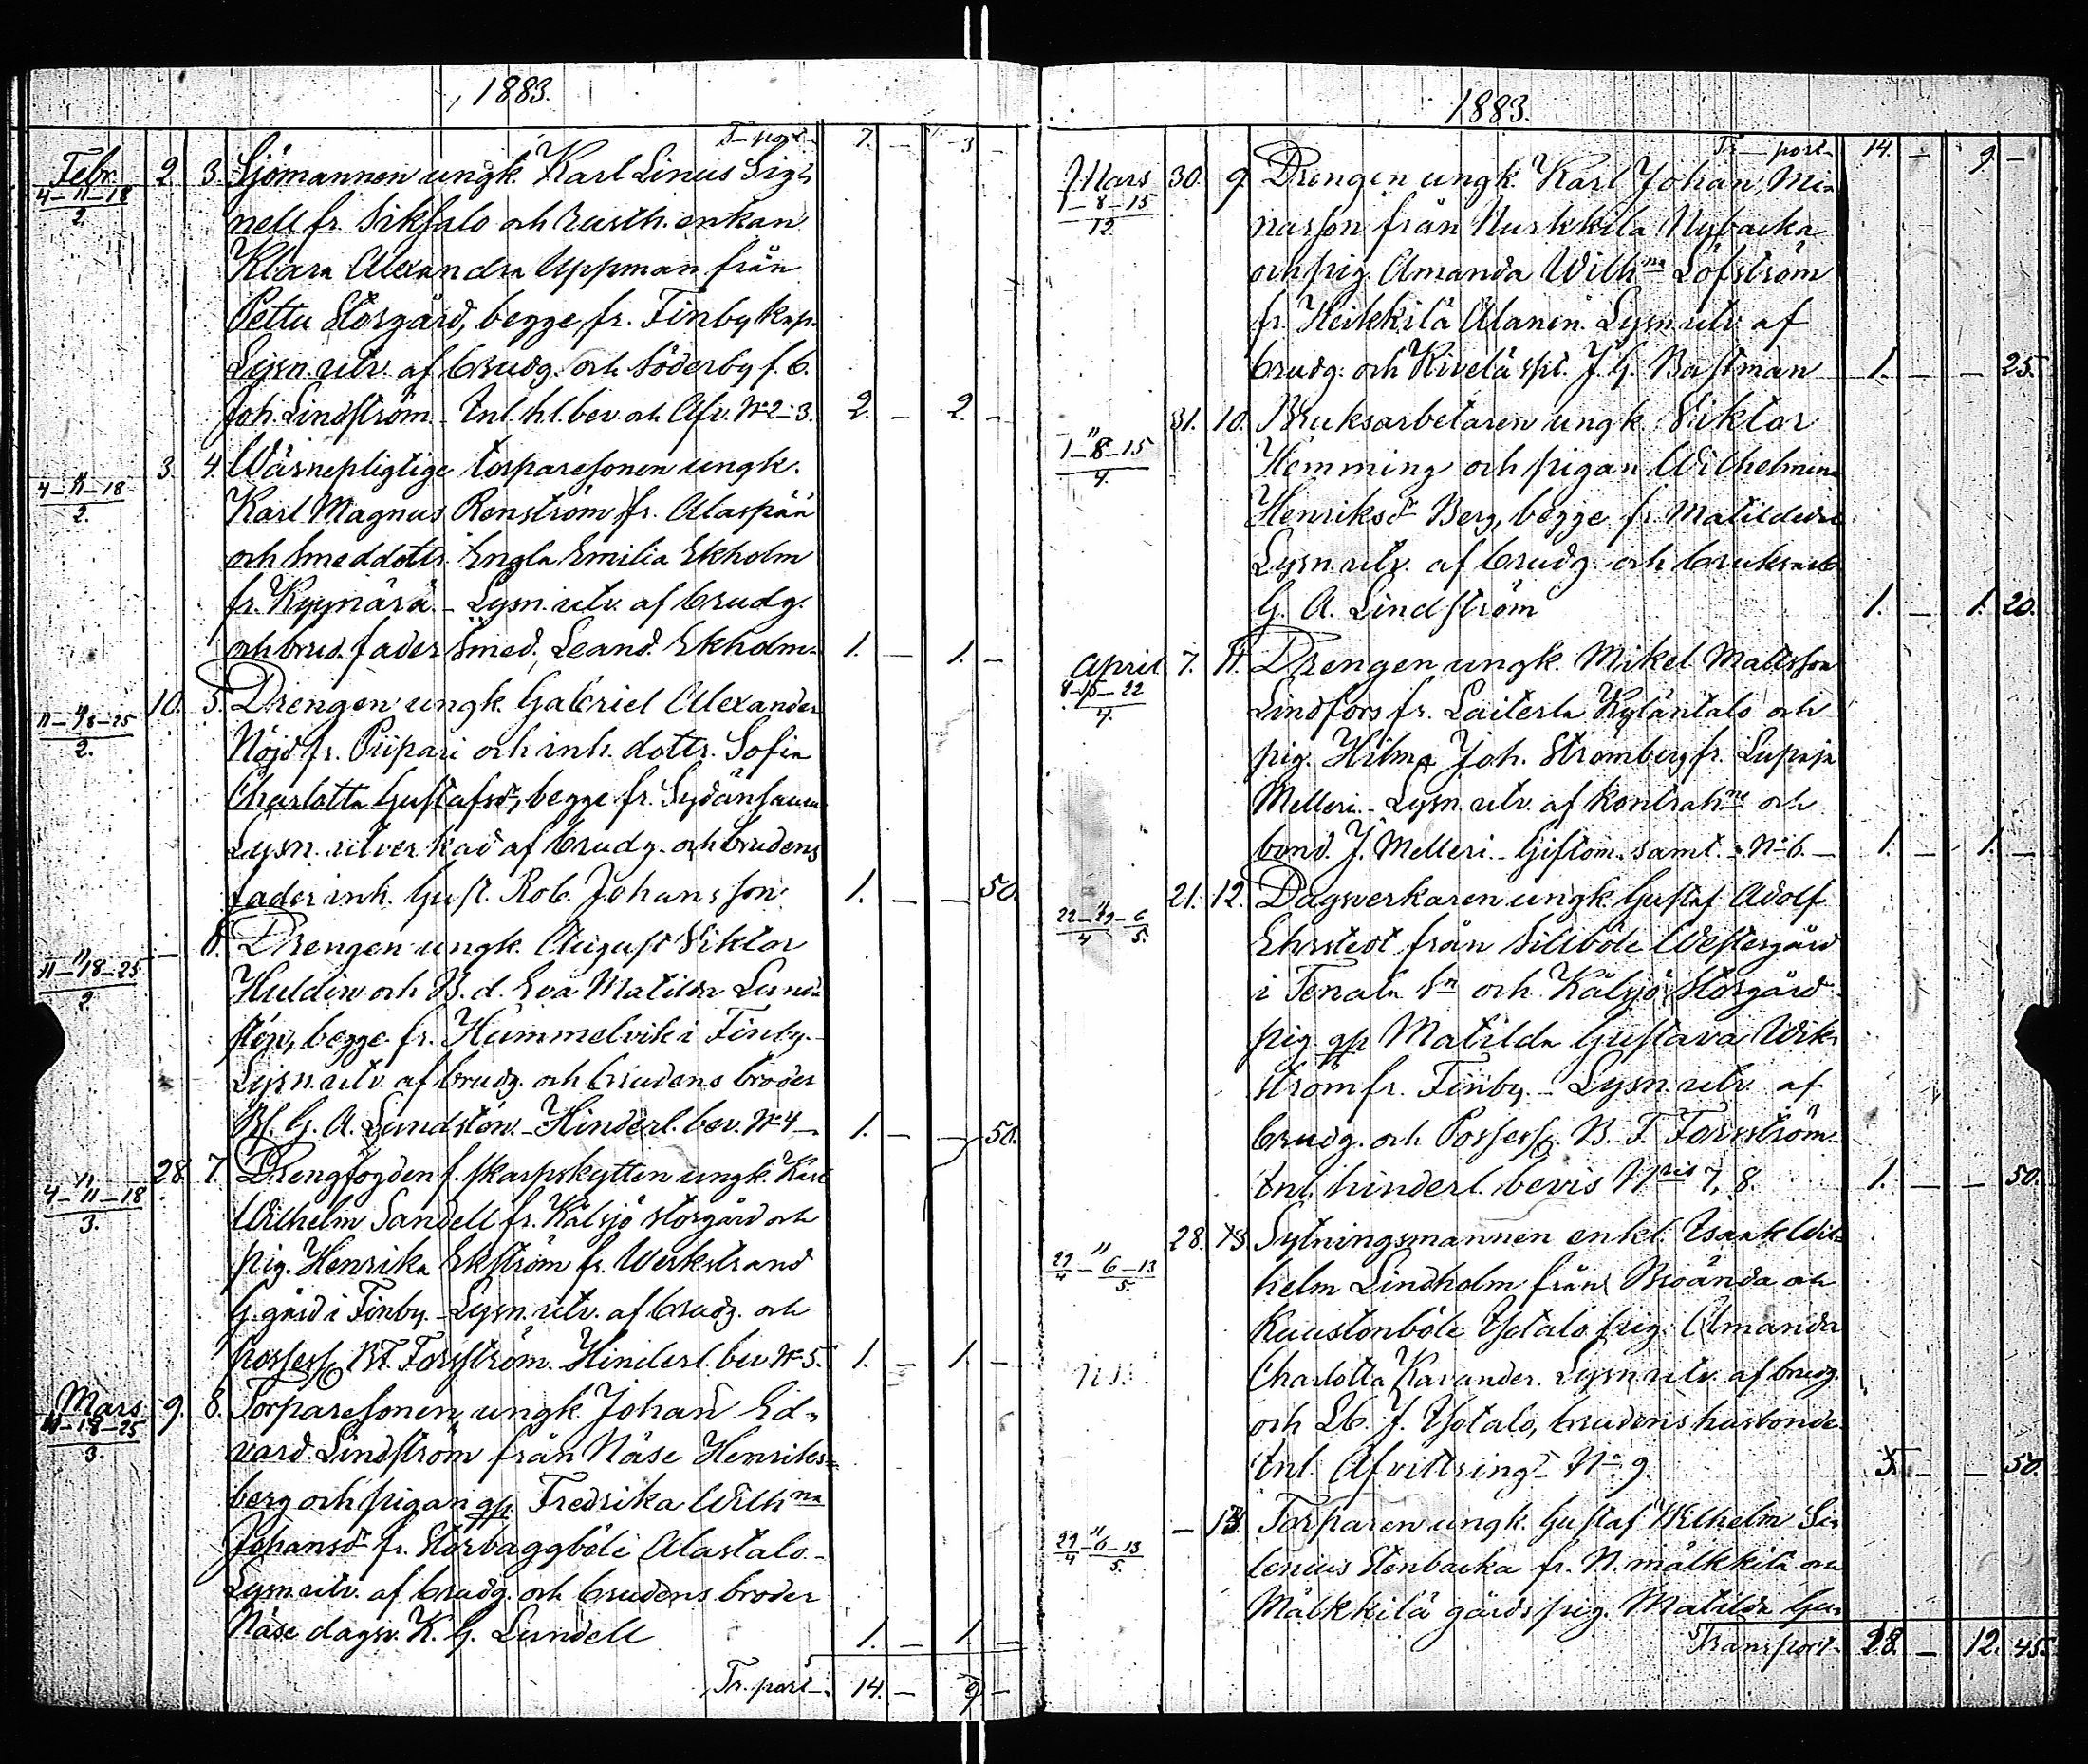 1883.
Tr-port 7. — 3 —
Febr. 2. 3. Sjömannen ungk. Karl Linus Sig-
4-11-18/2 nell fr. Siksalo och enkan
Klara Alexandra Uppman från
Pettu Storgård, begge fr. Finby kap.
Lysn. utv. af brudg. och Söderby f. b.
Joh. Lindström. - Inl. hl. bev. och Afv. No 2-3. 2. — 2. —
" 3. 4. Wärnepligtige torparesonen ungk.
4-11-18/2. Karl Magnus Renström fr. Alaspää
och Smeddottr. Engla Emilia Ekholm
fr. Kyynärä. - Lysn. utv. af brudg.
och brud. fader Smed. Leand. Ekholm. 1. — 1. —
" 10. 5. Drengen ungk. Gabriel Alexander
11-18-25/2. Nöjd fr. Piipari och inh. dottr. Sofia
Charlotta Gustafsdr, begge fr.
Lysn. utverkad af brudg. och brudens
fader inh. Gust. Rob. Johansson 1. — — 50.
" — 6. Drengen ungk. August Viktor
11-18-25/2 Huldin och B. d. Eva Matilda Lund-
stén, begge fr. Hummelvik i Finby.
Lysn. utv. af brudg. och brudens broder
G. A. Lundstén. - Hinderl. bev. No 4 — 1. — — 50.
" 28. 7. Drengfogden f. skarpskytten ungk. Karl
4-11-18/3. Wilhelm Sandell fr. Kälsjö storgård och
pig. Henrika Ekström fr. Werkstrand
G. gård i Finby. - Lysn. utv. af brudg. och
possess. B. F. Forsström. Hinderl. bev. No 5. 1. — 1. —
Mars 9. 8. Torparesonen, ungk. Johan Ed-
11-18-25/3. vard Lindström från Näse Henriks-
berg och pigan Fredrika Wilhna
Johansdr fr. Storbaggböle Alastalo. -
Lysn. utv. af brudg. och brudens broder
Näse dagsv. K. G. Lundell 1. — 1. —
Tr. port — 14. — 9 —
1883.
Tr-port- 14. — 9. —
Mars 30. 9. Drengen ungk. Karl Johan Mi-
1-8-15/12 nasson från Nurkkila Nybacka
och pig. Amanda Wilhna Löfström
fr. Heikkilä Alanen. Lysn. utv. af
brudg. och Kivelä spt. J. G. Bastman 1. — — 25.
" 31. 10. Bruksarbetaren ungk. Viktor
1-8-15/4. Hemming och pigan Wilhelmina
Henriksdr Berg, begge fr. Matildedal
Lysn. utv. af brudg. och bruksarb
G. A. Lindström 1. — 1. 20.
April 7. 11. Drengen ungk. Mikel Mattsson
8-15-22/4. Lindfors fr. Laiterla Kyläntalo och
pig. Hilma Joh. Strömberg fr. Lupaja
Melleri. - Lysn. utv. af kontrahne och
bond. J. Melleri. - Giftom. samt. - No 6. — 1. — 1. —
" 21. 12. Dagsverkaren ungk. Gustaf Adolf
22-29/4-6/5. Ehrstedt från Sillböle Westergård
i Tenala Sn och Kälsjö Storgård
pig. Matilda Gustava Wik-
ström fr. Finby. - Lysn. utv. af
brudg. och Possess. B. F. Forsström.
Inl. hinderl. bevis Nris 7, 8. 1. — — 50.
" 28. 13. Sytningsmannen enkl. Isaak Wil-
29/4-6-13/5. helm Lindholm från Broända och
Ruustonböle Isotalo pig. Amanda
Charlotta Kavander. Lysn. utv. af brudg.
och Lb. J. Isotalo, brudens husbonde.
Inl. Afvittring No 9 5. — — 50.
" — 13. Torparen ungk. Gustaf Wilhelm Si-
29/4-6-13/5. lenius Stenbacka fr. N. målkkilä och
Målkkilä gårds pig. Matilda Gu-
Transport- 28. — 12. 45.